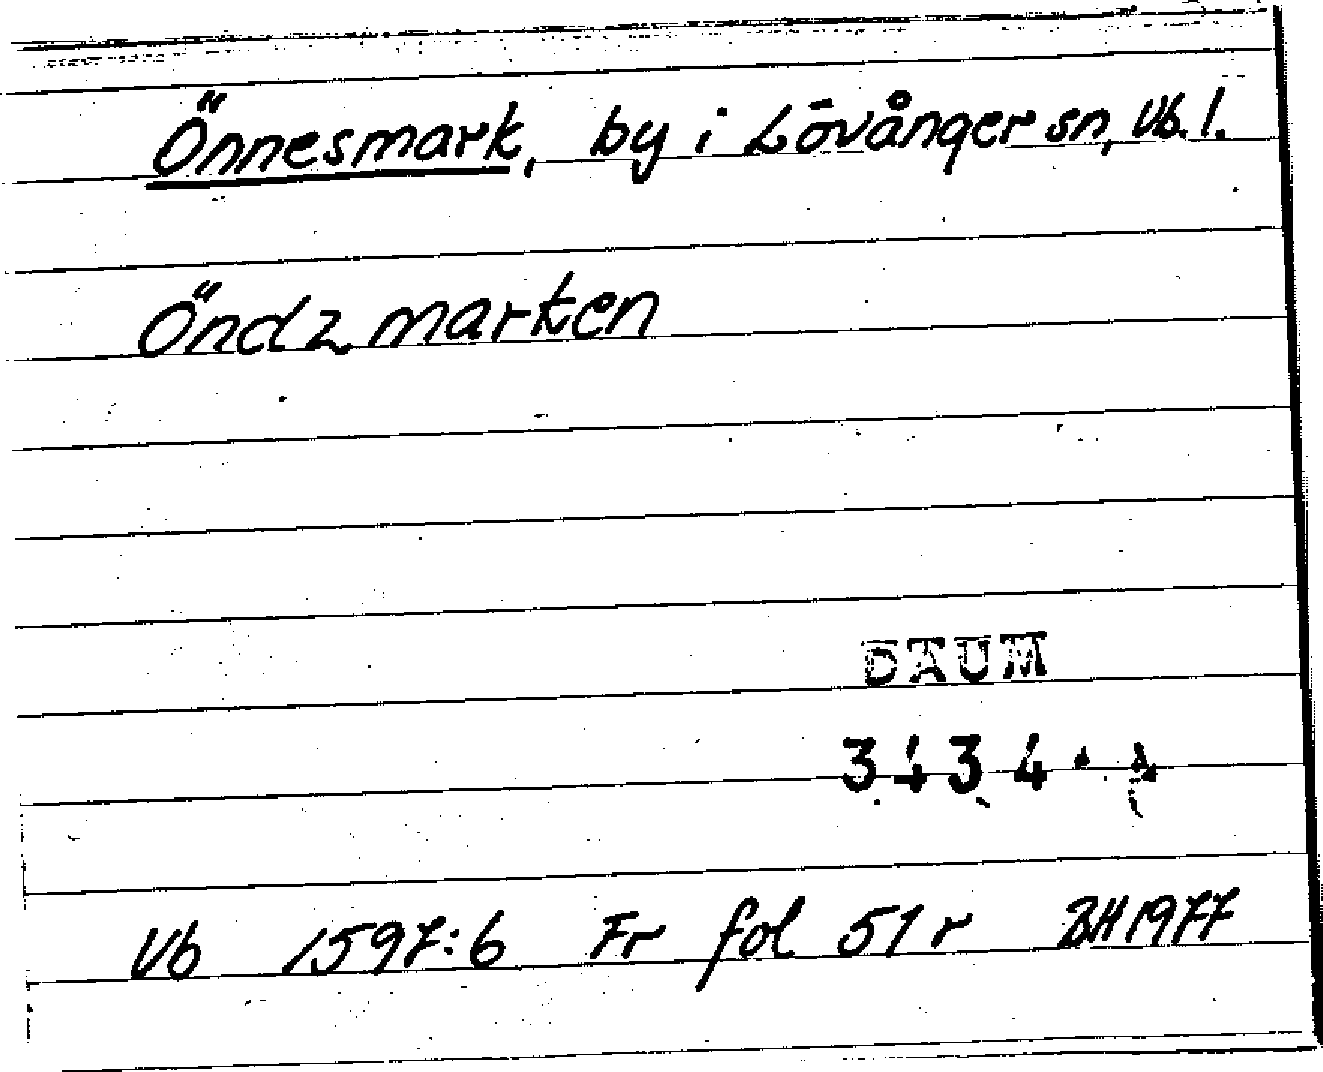 Önnesmark, by i Lövånger sn, Vb. l.
Öndz marken
DAUM
3434
Vb 1597:6 Fr fol 51 r BH 1977